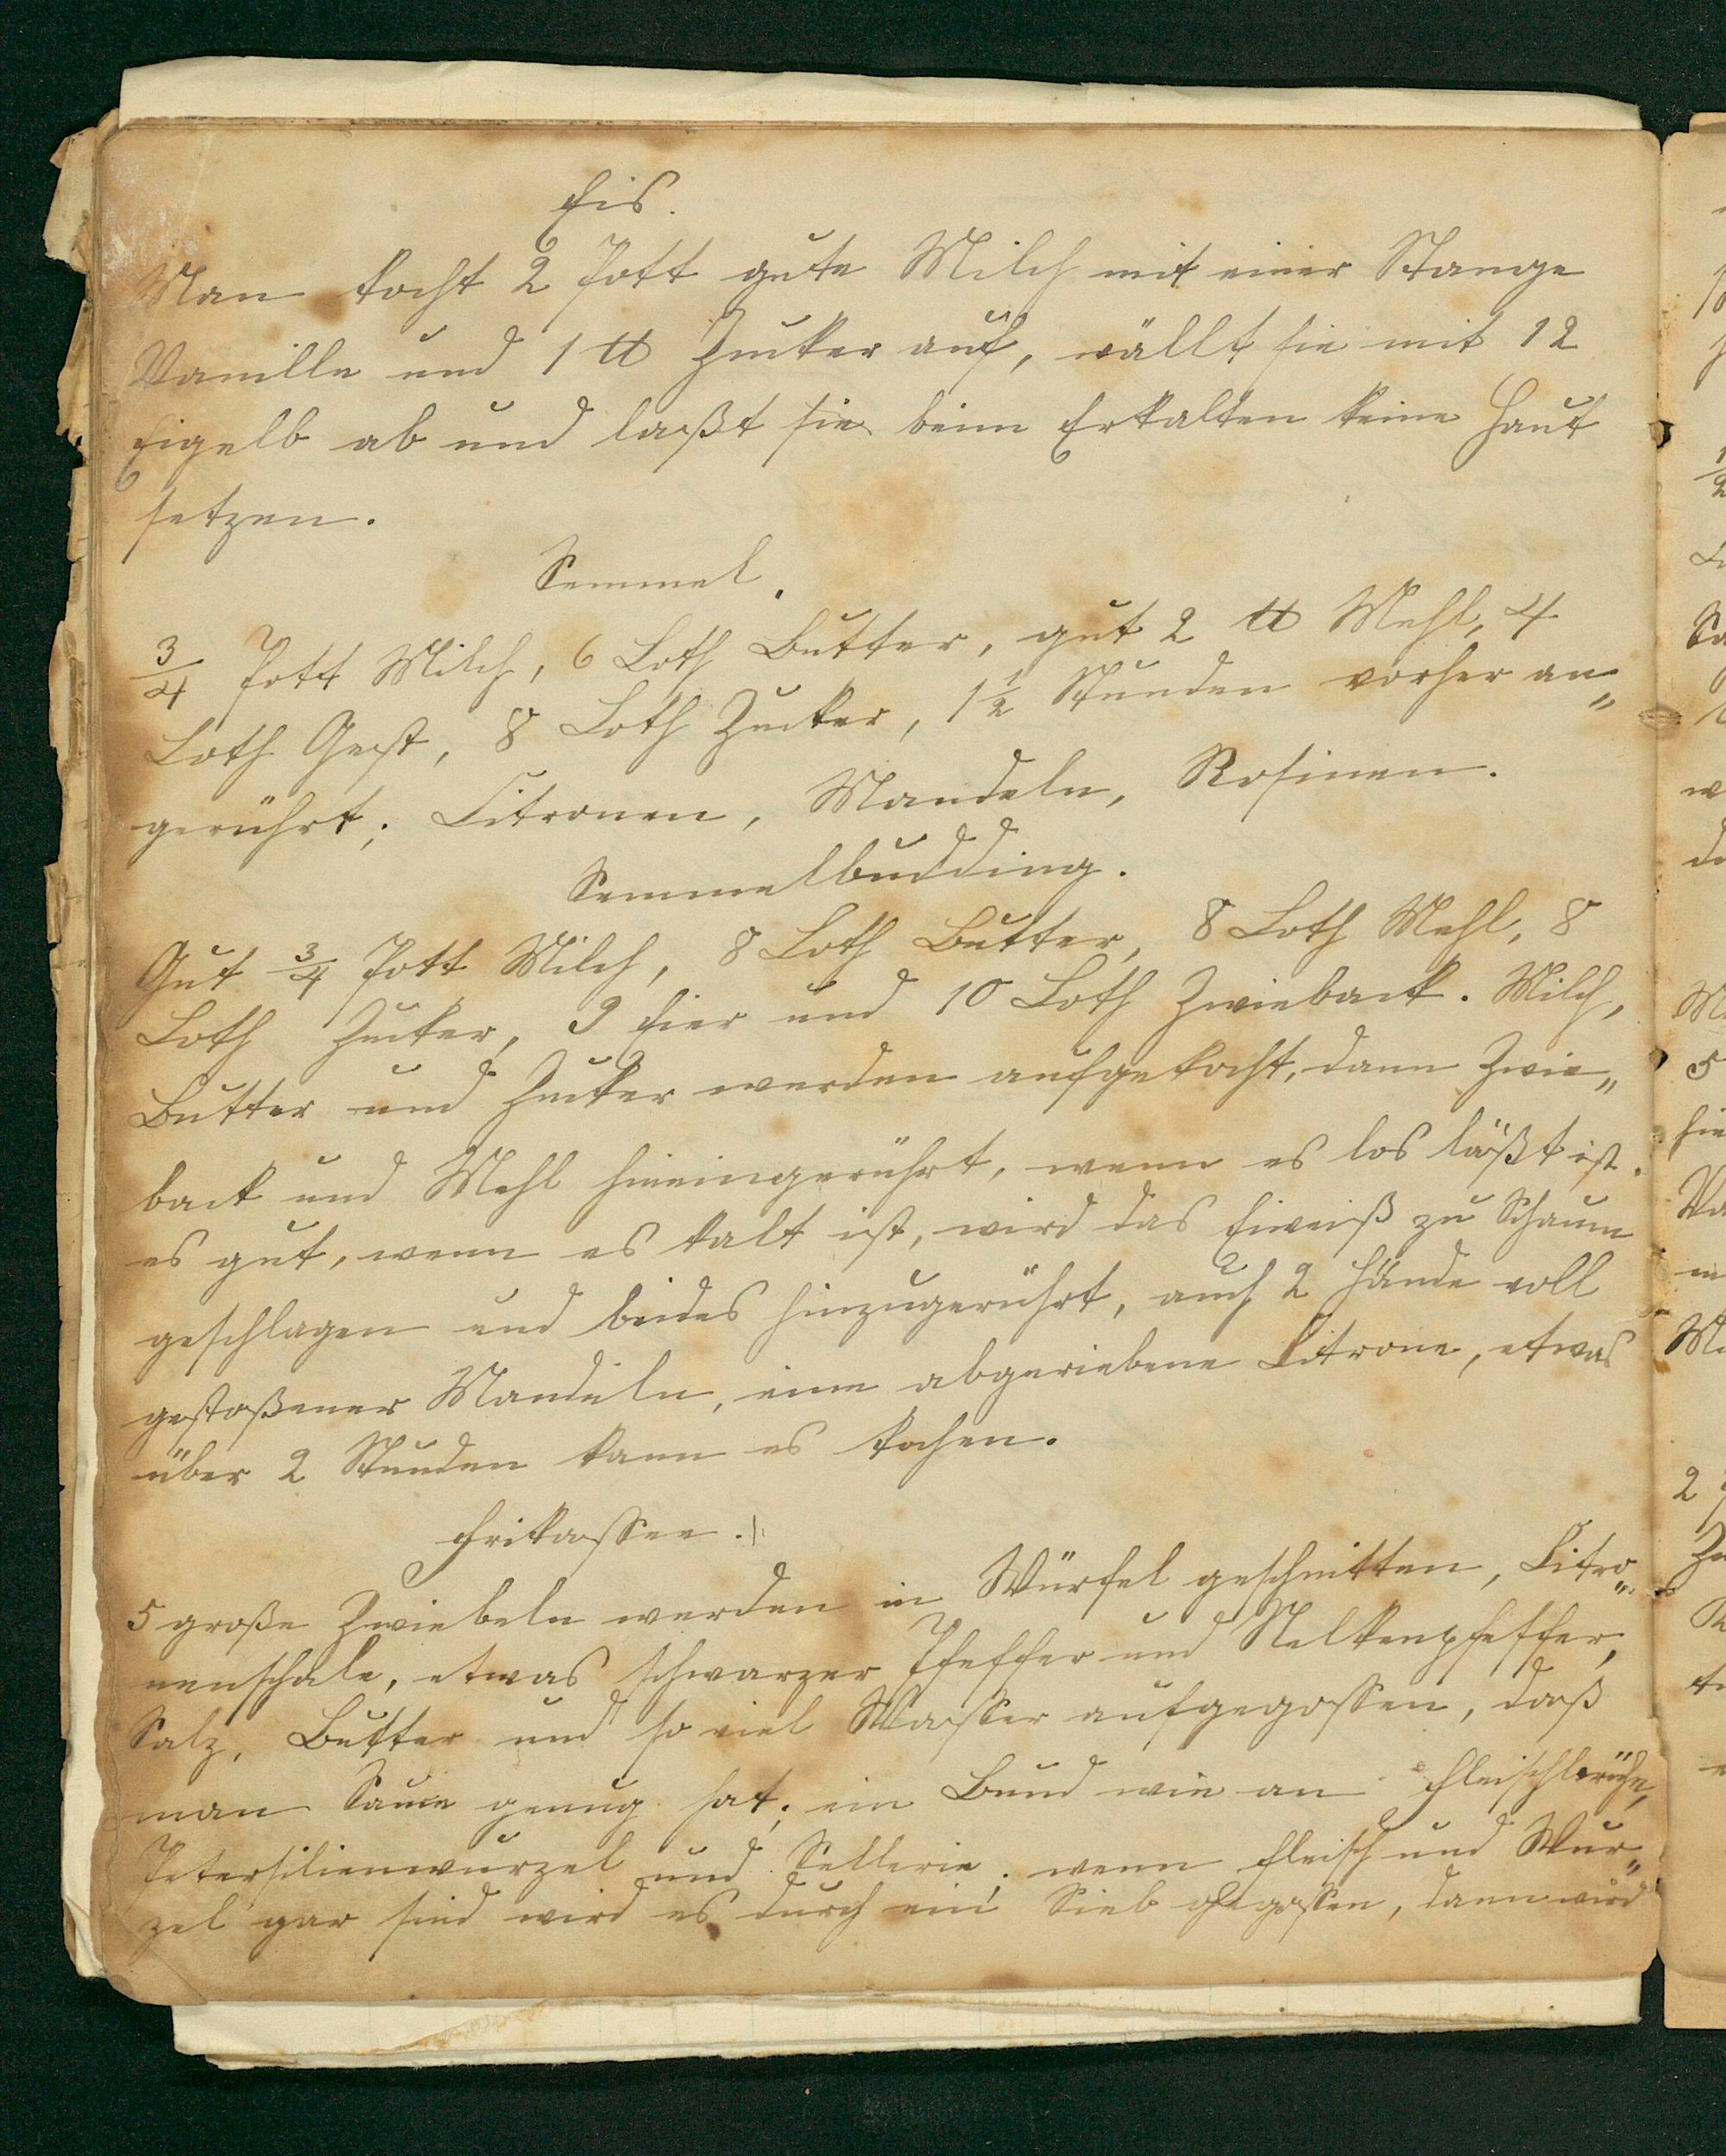 Eis.
Man kocht 2 Pott gute Milch mit einer Stange
Vanille und 1 ℔ Zucker auf, wällt sie mit 12
Eigelb ab und laßt sie beim Erkalten keine Haut
setzen.
Semmel.
3/4 Pott Milch, 6 Loth Butter, gut 2 ℔ Mehl, 4
Loth Gest, 8 Loth Zucker, 1 1/2 Stunden vorher an„
gerührt; Citronen, Mandeln, Rosinen.
Semmelbudding.
Gut 3/4 Pott Milch, 8 Loth Butter, 8 Loth Mehl, 8
Loth Zucker, 9 Eier und 10 Loth Zwieback. Milch,
Butter und Zucker werden aufgekocht, dann Zwie„
back und Mehl hineingerührt, wenn es los läßt ist
es gut, wenn es kalt ist, wird das Eiweiß zu Schaum
geschlagen und beides hinzugerührt, auch 2 Hände voll
gestoßener Mandeln, eine abgeriebene Citrone, etwas
über 2 Stunden kann es kochen.
Frikassee.
5 große Zwiebeln werden in Würfel geschnitten, Citro„
nenschale, etwas schwarzer Pfeffer und Nelkenpfeffer,
Salz, Butter und so viel Wasser aufgegossen, daß
man Sauce genug hat; ein Bund wie an Fleischbrühe,
Petersilienwurzel und Sellerie; wenn Fleisch und Wur„
zel gar sind wird es durch ein Sieb gegossen, dann wird